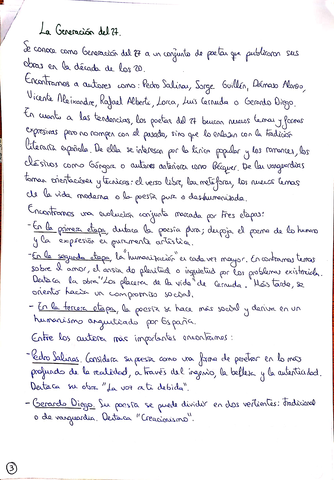 La Generación del 27.
Se conoce como Generación del 27 a un conjunto de poetas que publicaron sus
obras en la década de los 20.
Encontramos a autores como: Pedro Salinas, Jorge Guillén, Dámaso Alonso,
Vicente Aleixandre, Rafael Alberti, Lorca, Luis Cernuda o Gerardo Diego.
En cuanto a las tendencias, los poetas del 27 buscan nuevos temas y formas
expresivas pero no rompen con el pasado, sino que lo enlazan con la tradición
literaria española. De ella se interesan por la lírica popular y los romances, los
clásicos como Góngora o autores anteriores como Bécquer. De las vanguardias
toman orientaciones y técnicas: el verso libre, las metáforas, los nuevos temas
de la vida moderna o la poesía pura o deshumanizada.
Encontramos una evolución conjunta marcada por tres etapas:
- En la primera etapa, destaca la poesía pura; despoja el poema de lo humano
y la expresión es puramente artística.
- En la segunda etapa, la "humanización" es cada vez mayor. Encontramos temas
sobre el amor, el ansia de plenitud o inquietud por los problemas existenciales.
Destaca la obra "Los placeres de la vida" de Cernuda. Más tarde, se
orienta hacia un compromiso social.
- En la tercera etapa, la poesía se hace más social y deriva en un
humanismo angustiado por España.
Entre los autores más importantes encontramos:
- Pedro Salinas. Considera su poesía como una forma de penetrar en lo más
profundo de la realidad, a través del ingenio, la belleza y la autenticidad.
Destaca su obra "La voz a ti debida".
- Gerardo Diego. Su poesía se puede dividir en dos vertientes: Tradicional
o de vanguardia. Destaca "Creacionismo".
3